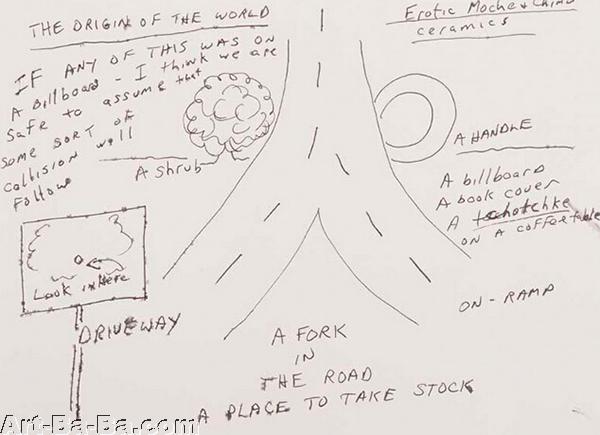 THE ORIGIN OF THE WORLD
IF ANY OF THIS WAS ON
A BILLBOARD - I THINK WE ARE
SAFE TO ASSUME that
SOME SORT OF
COLLISION WILL
FOLLOW
A Shrub
Look in Here
DRIVEWAY
Erotic Moche +
ceramics
A HANDLE
A billboard
A book cover
A tchotchke
ON A COFFEE table
ON-RAMP
A FORK
IN
THE ROAD
A PLACE TO TAKE STOCK
Art-Ba-Ba.com